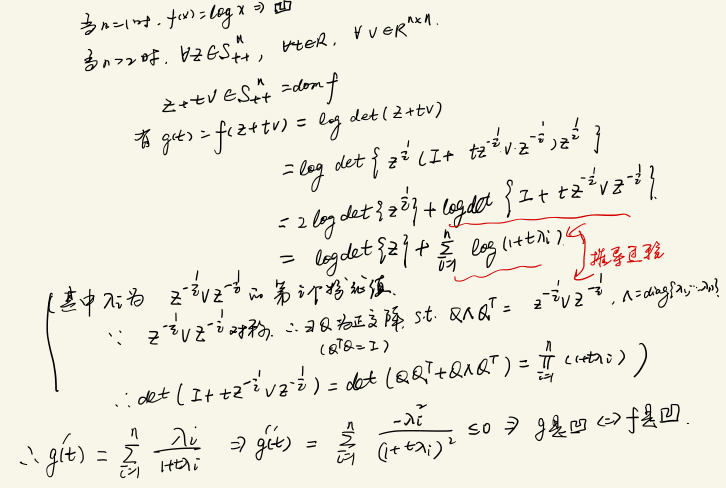 当n=1时, f(x)=logx ⇒ 凹
当n>2时, ∀z∈S₊₊ⁿ, ∀t∈R, ∀V∈Rⁿˣⁿ.
z+tV∈S₊₊ⁿ=domf
有 g(t)=f(z+tV)=log det(z+tV)
=log det{z^{1/2}(I+tz^{-1/2}·V·z^{-1/2})z^{1/2}}
=2logdet{z^{1/2}}+logdet{I+tz^{-1/2}Vz^{-1/2}}.
=logdet{z}+∑_{i=1}^{n} log(1+tλi)
推导过程
(其中λi为 z^{-1/2}Vz^{-1/2}的第i个特征值.
∵ z^{-1/2}Vz^{-1/2}对称, ∴∃Q为正交阵, s.t. QΛQᵀ=z^{-1/2}Vz^{-1/2}, Λ=diag{λ₁,…λn}
(QᵀQ=I)
∴det(I+tz^{-1/2}Vz^{-1/2})=det(QQᵀ+QΛQᵀ)=∏_{i=1}^{n}(1+tλi))
∴g′(t)=∑_{i=1}^{n} λi/(1+tλi) ⇒ g″(t)=∑_{i=1}^{n} -λi²/(1+tλi)² ≤0 ⇒ g是凹⇔f是凹.